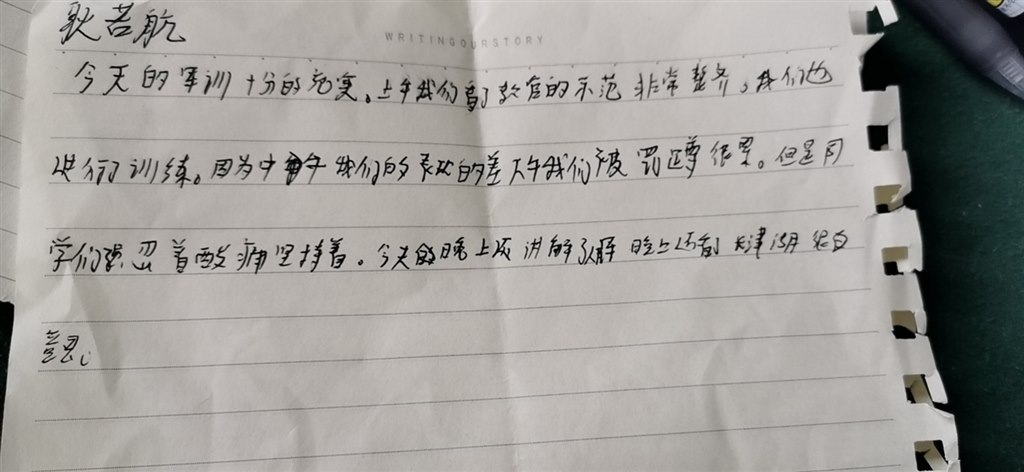 耿若航
WRITINGOURSTORY
今天的军训十分的充实。上午我们看了教官的示范非常整齐，我们也
进行了训练。因为中午我们的表现的差下午我们被罚蹲很累。但是同
学们强忍着酸痛坚持着。今天的晚上讲解了 晚上还看 天津 很有
意思。